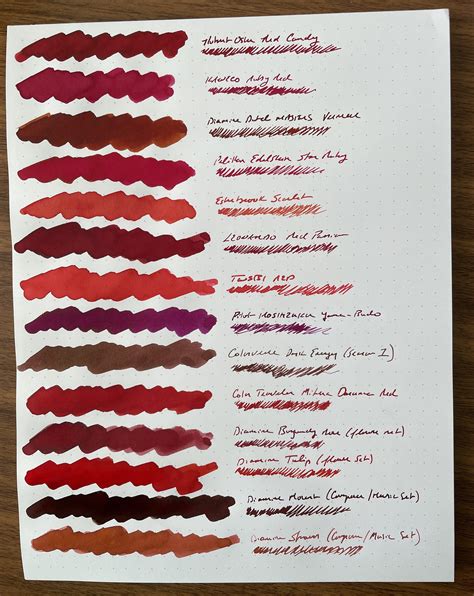 Robert Oster Red Candy
KAWECO Ruby Red
Diamine Dutch MASTERS
Pelikan Edelstein Star Ruby
Esterbrook Scarlet
LEONARDO Red Passion
TWSBI RED
Pilot IROSHIZUKU Yama-Budo
Colorverse Dark Energy (Season 1)
Color Traveler Mihara Daruma Red
Diamine Burgundy Rose (flower set)
Diamine Tulip (flower Set)
Diamine Mozart (Composer/Music Set)
Diamine Strauss (Composer/Music Set)